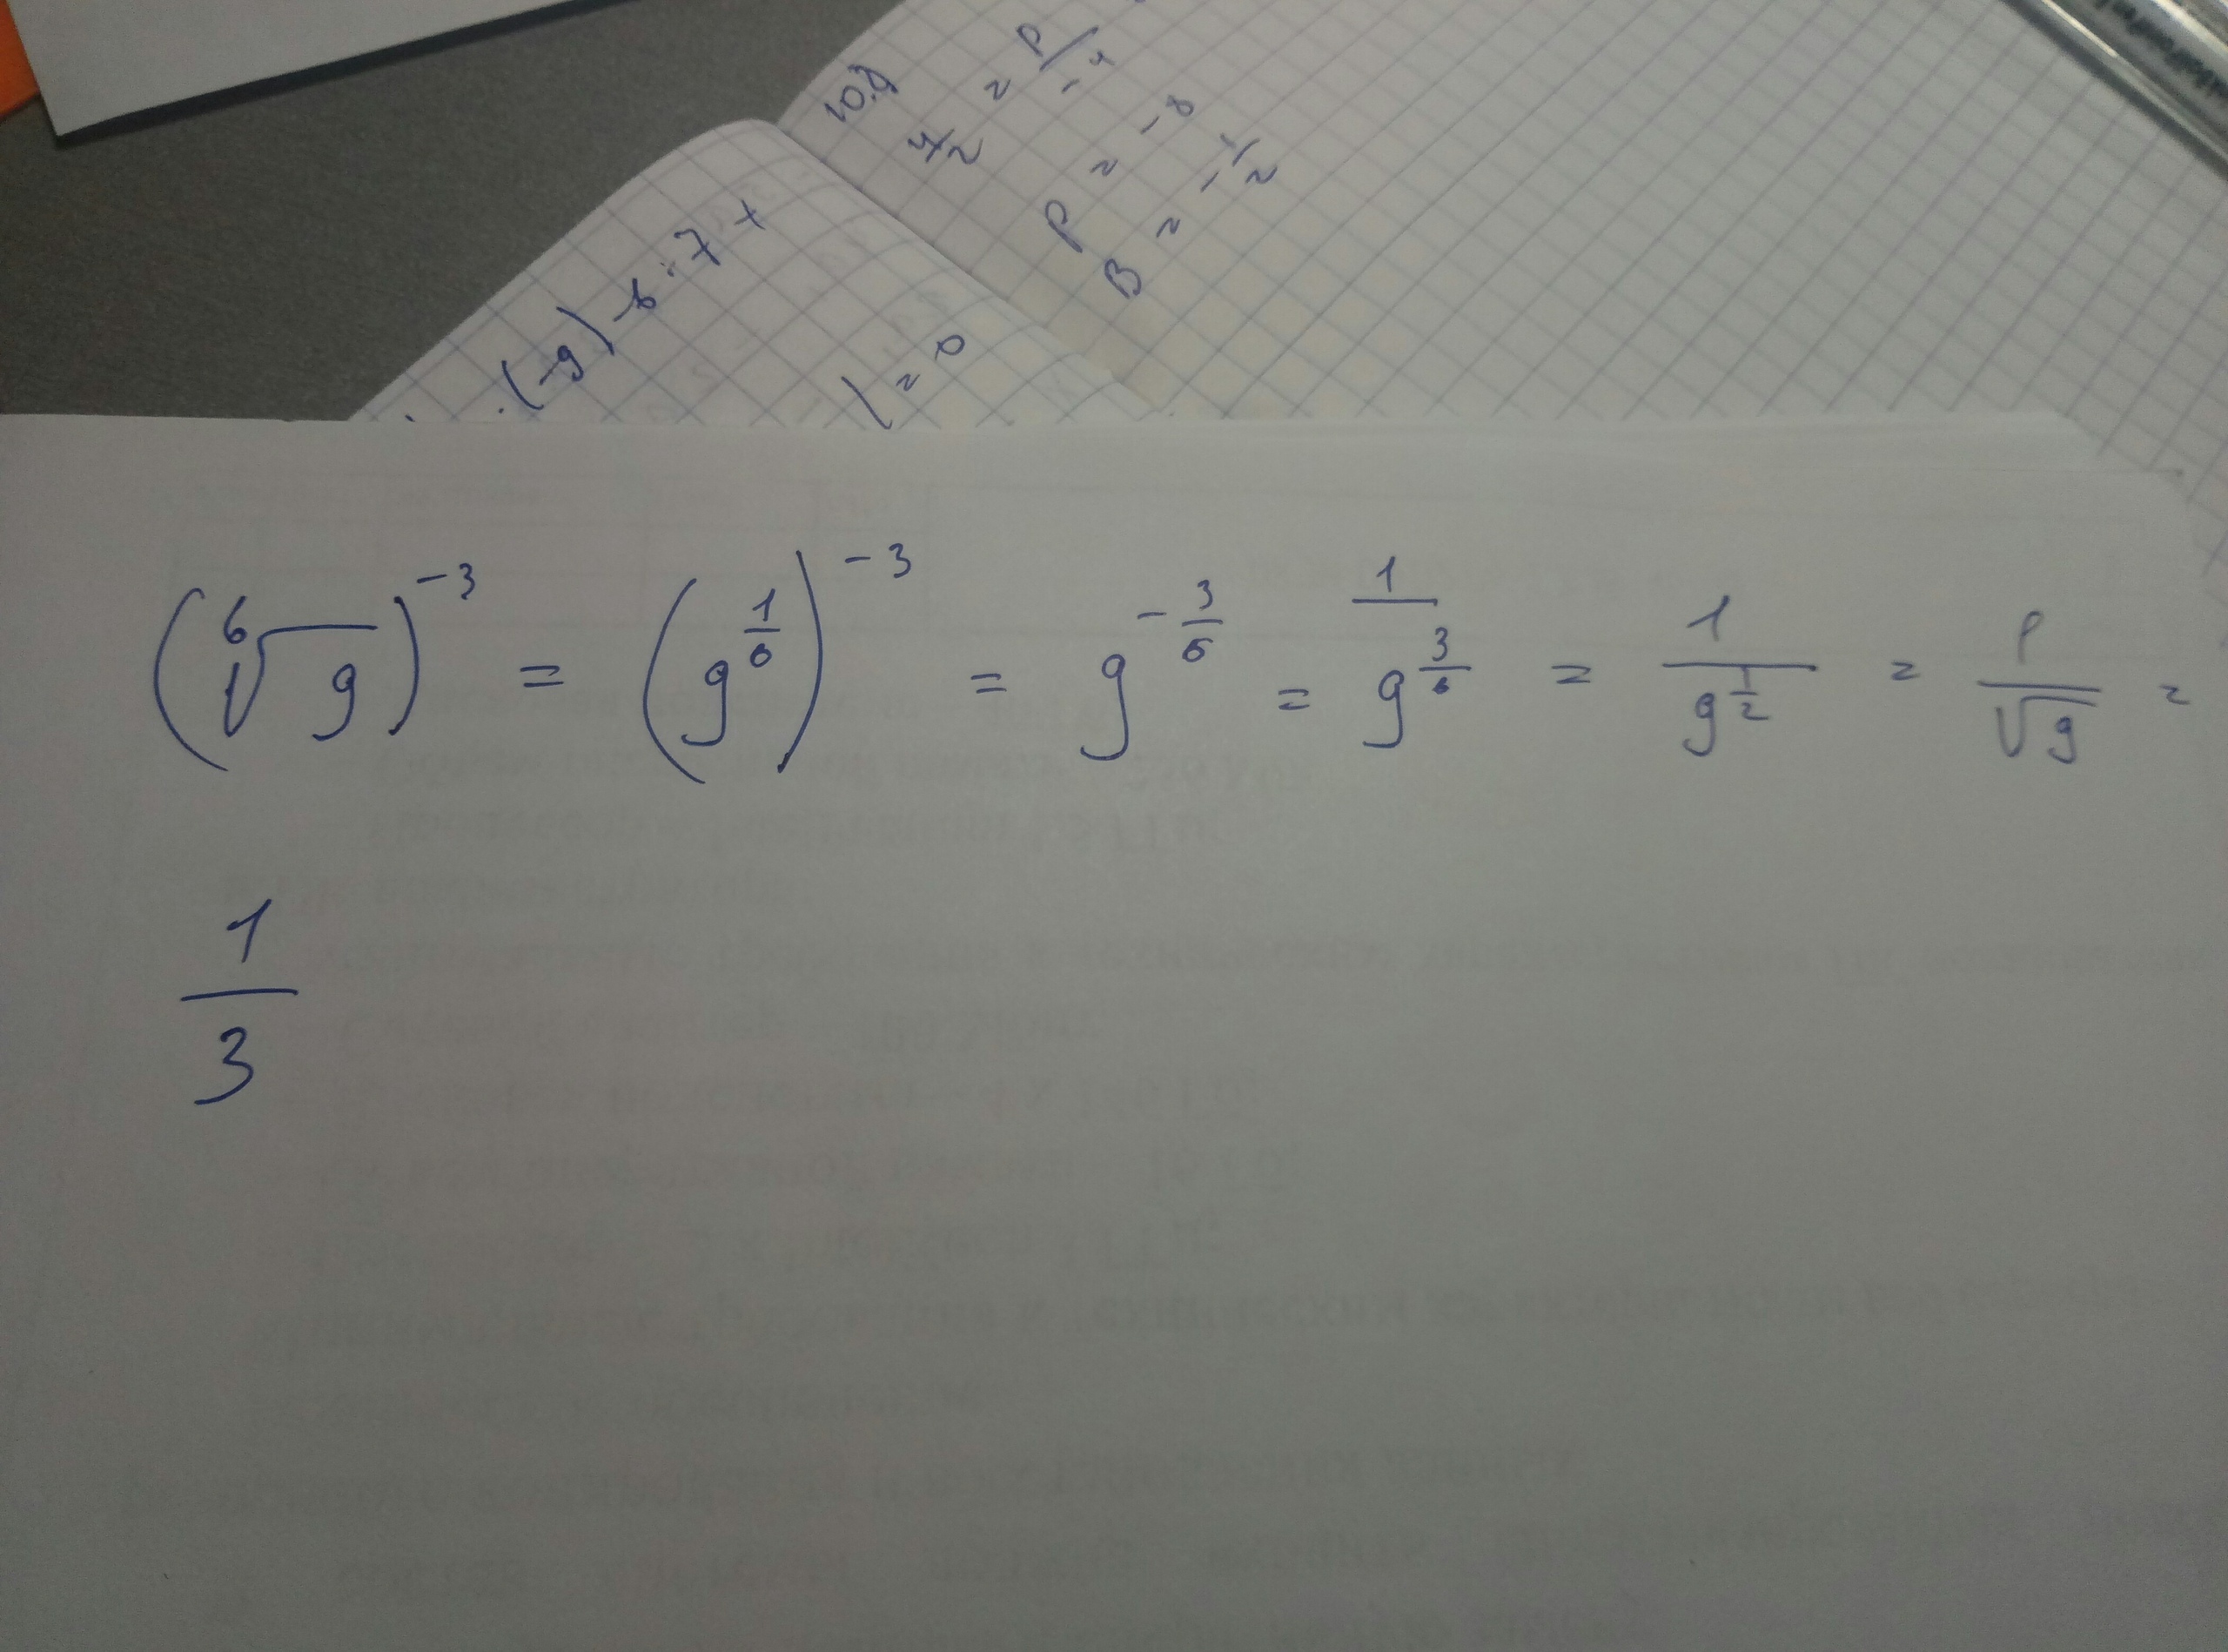 10.8
4/2 = P/-4
P = -8
B = -1/2
·(-9) -6·7 +
) = 0
(⁶√9)⁻³ = (9^(1/6))⁻³ = 9^(-3/6) = 1/9^(3/6) = 1/9^(1/2) = 1/√9 =
1/3